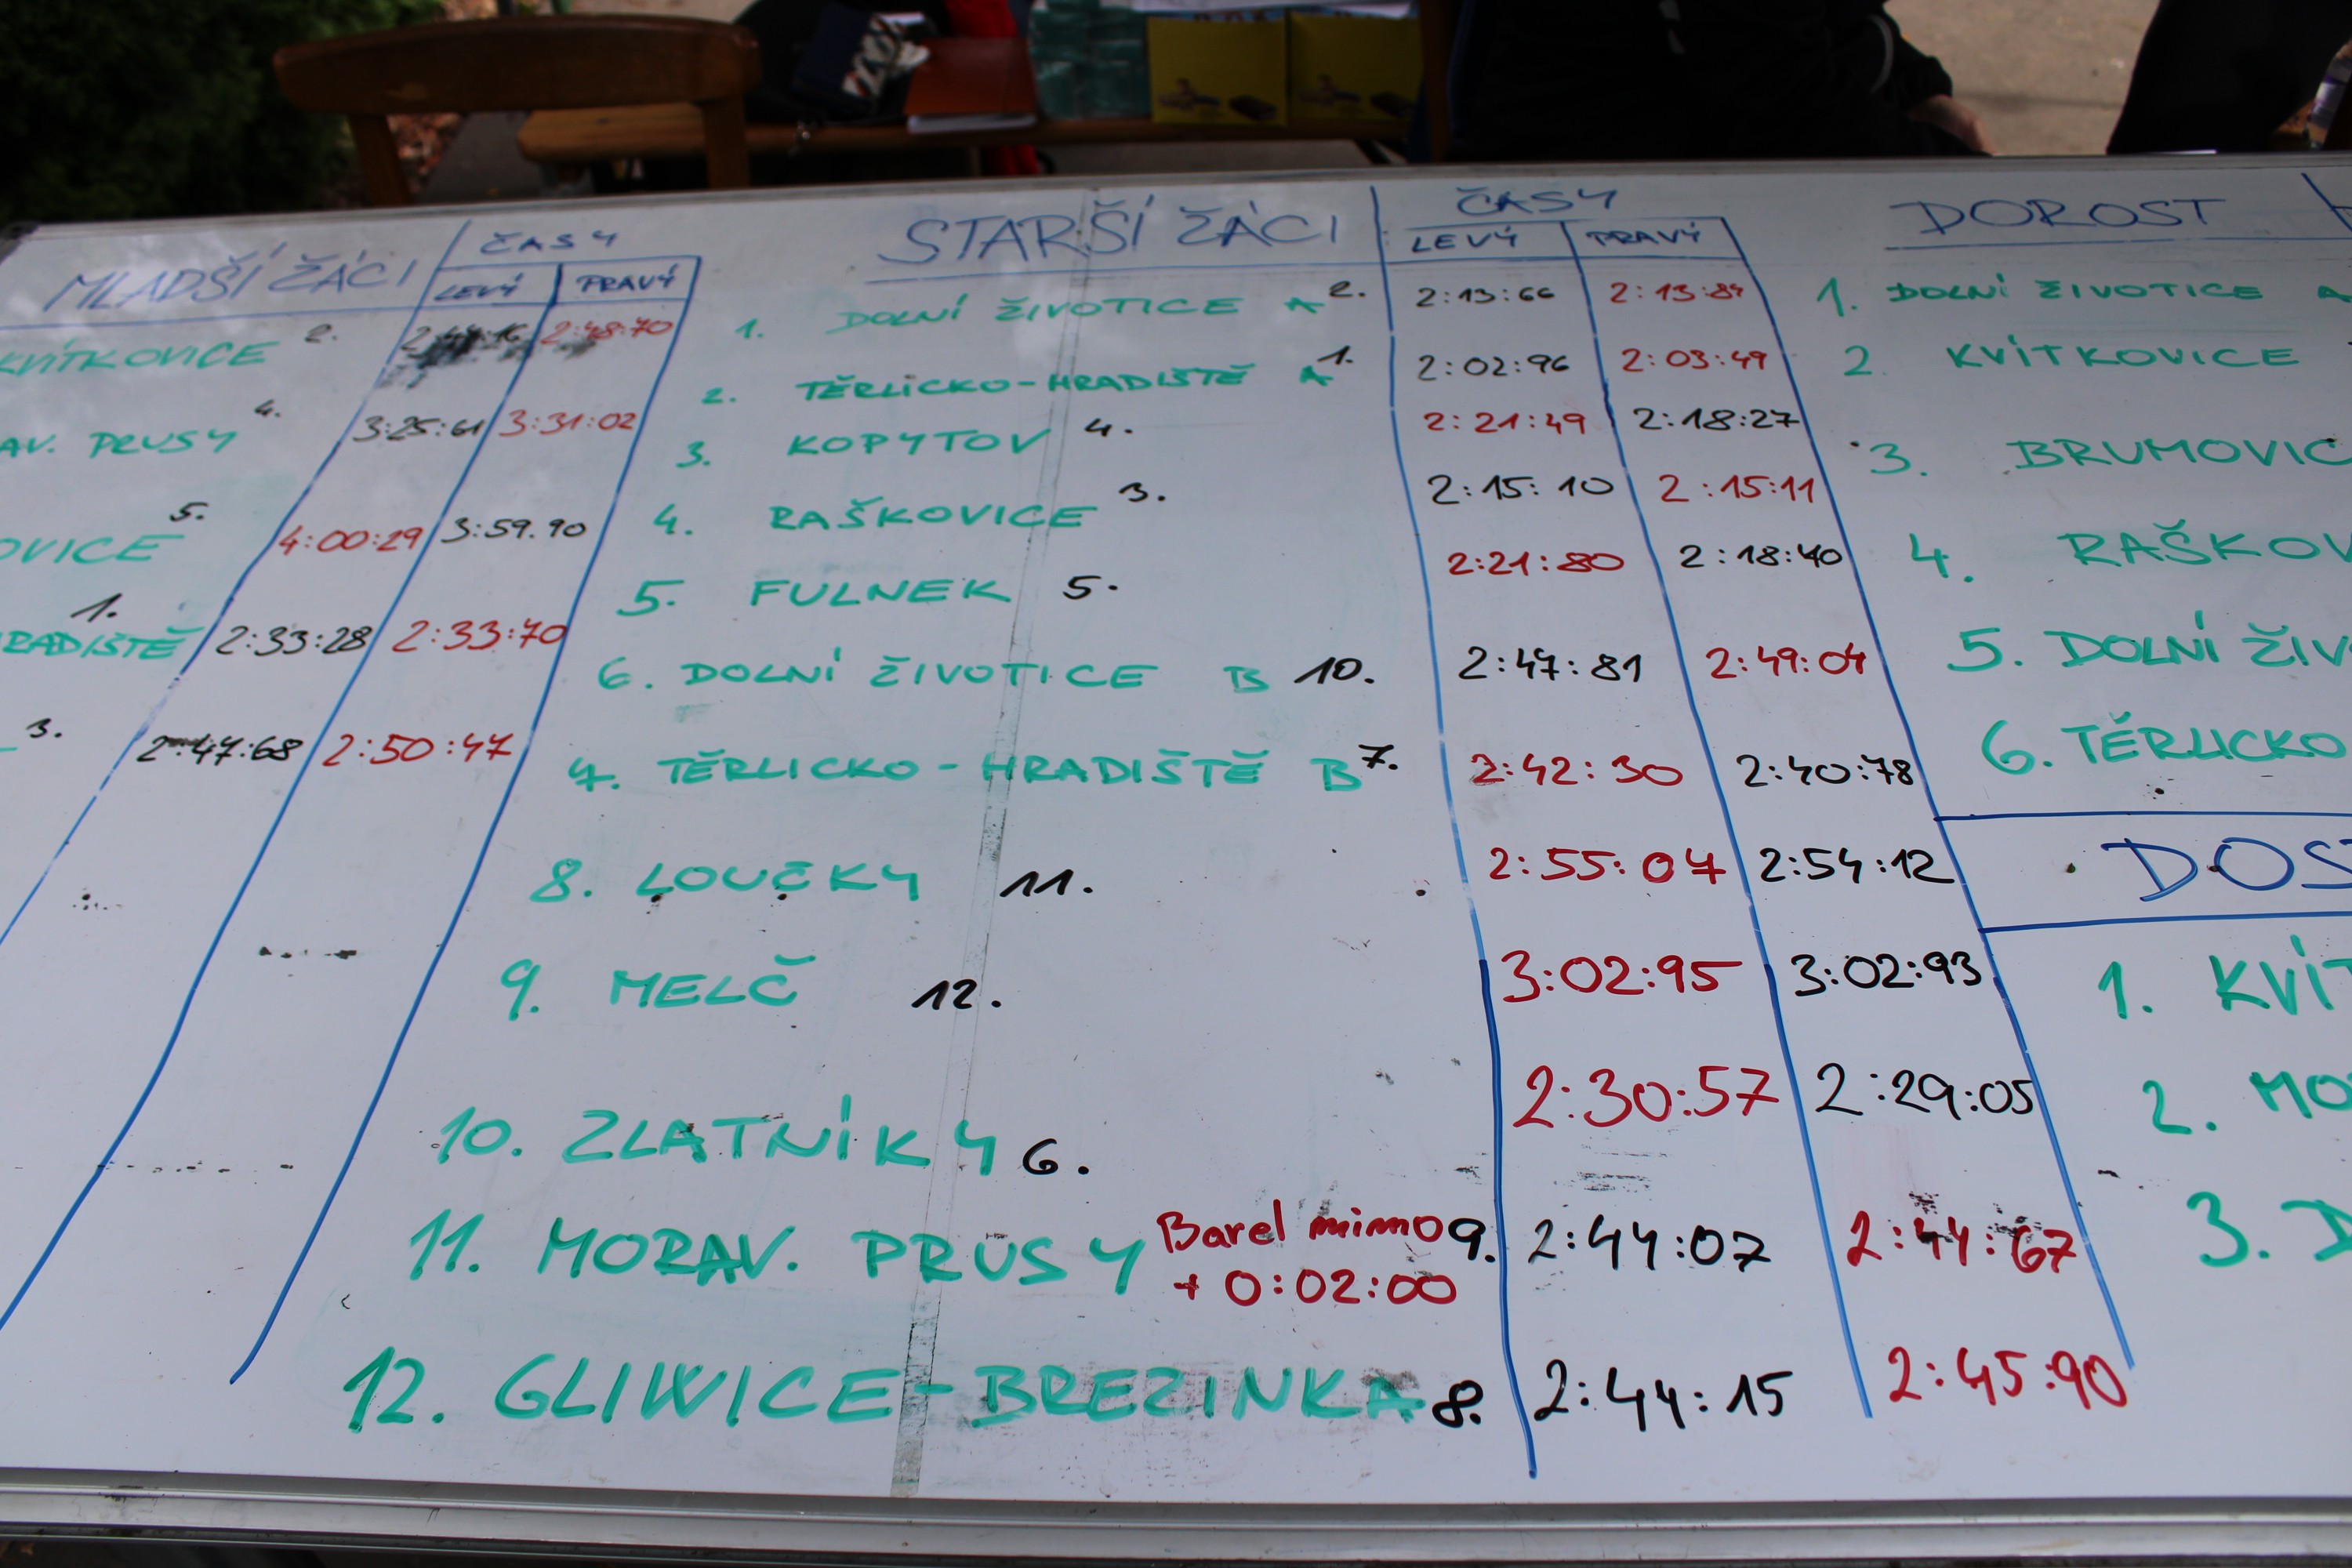 MLADŠÍ ŽÁCI ČASY
LEVÝ PRAVÝ
KVÍTKOVICE 2. 2:48:70
AV. PRUSY 4. 3:25:61 3:31:02
OVICE 5. 4:00:29 3:59.90
RADIŠTĚ 1. 2:33:28 2:33:70
3. 2:47:68 2:50:47
STARŠÍ ŽÁCI ČASY
LEVÝ PRAVÝ
1. DOLNÍ ŽIVOTICE A 2. 2:13:66 2:13:84
2. TĚRLICKO-HRADIŠTĚ A 1. 2:02:96 2:03:49
3. KOPYTOV 4. 2:21:49 2:18:27
4. RAŠKOVICE 3. 2:15:10 2:15:11
5. FULNEK 5. 2:21:80 2:18:40
6. DOLNÍ ŽIVOTICE B 10. 2:47:81 2:49:04
7. TĚRLICKO-HRADIŠTĚ B 7. 2:42:30 2:40:78
8. LOUČKY 11. 2:55:07 2:54:12
9. MELČ 12. 3:02:95 3:02:93
10. ZLATNÍKY 6. 2:30:57 2:29:05
11. MORAV. PRUSY Barel mimo 9. 2:44:07 2:44:67
+ 0:02:00
12. GLIWICE-BREZINKA 8. 2:44:15 2:45:90
DOROST
1. DOLNÍ ŽIVOTICE A
2. KVÍTKOVICE
3. BRUMOVIC
4. RAŠKOV
5. DOLNÍ ŽIV
6. TĚRLICKO
DOS
1. KVÍT
2. MO
3. D